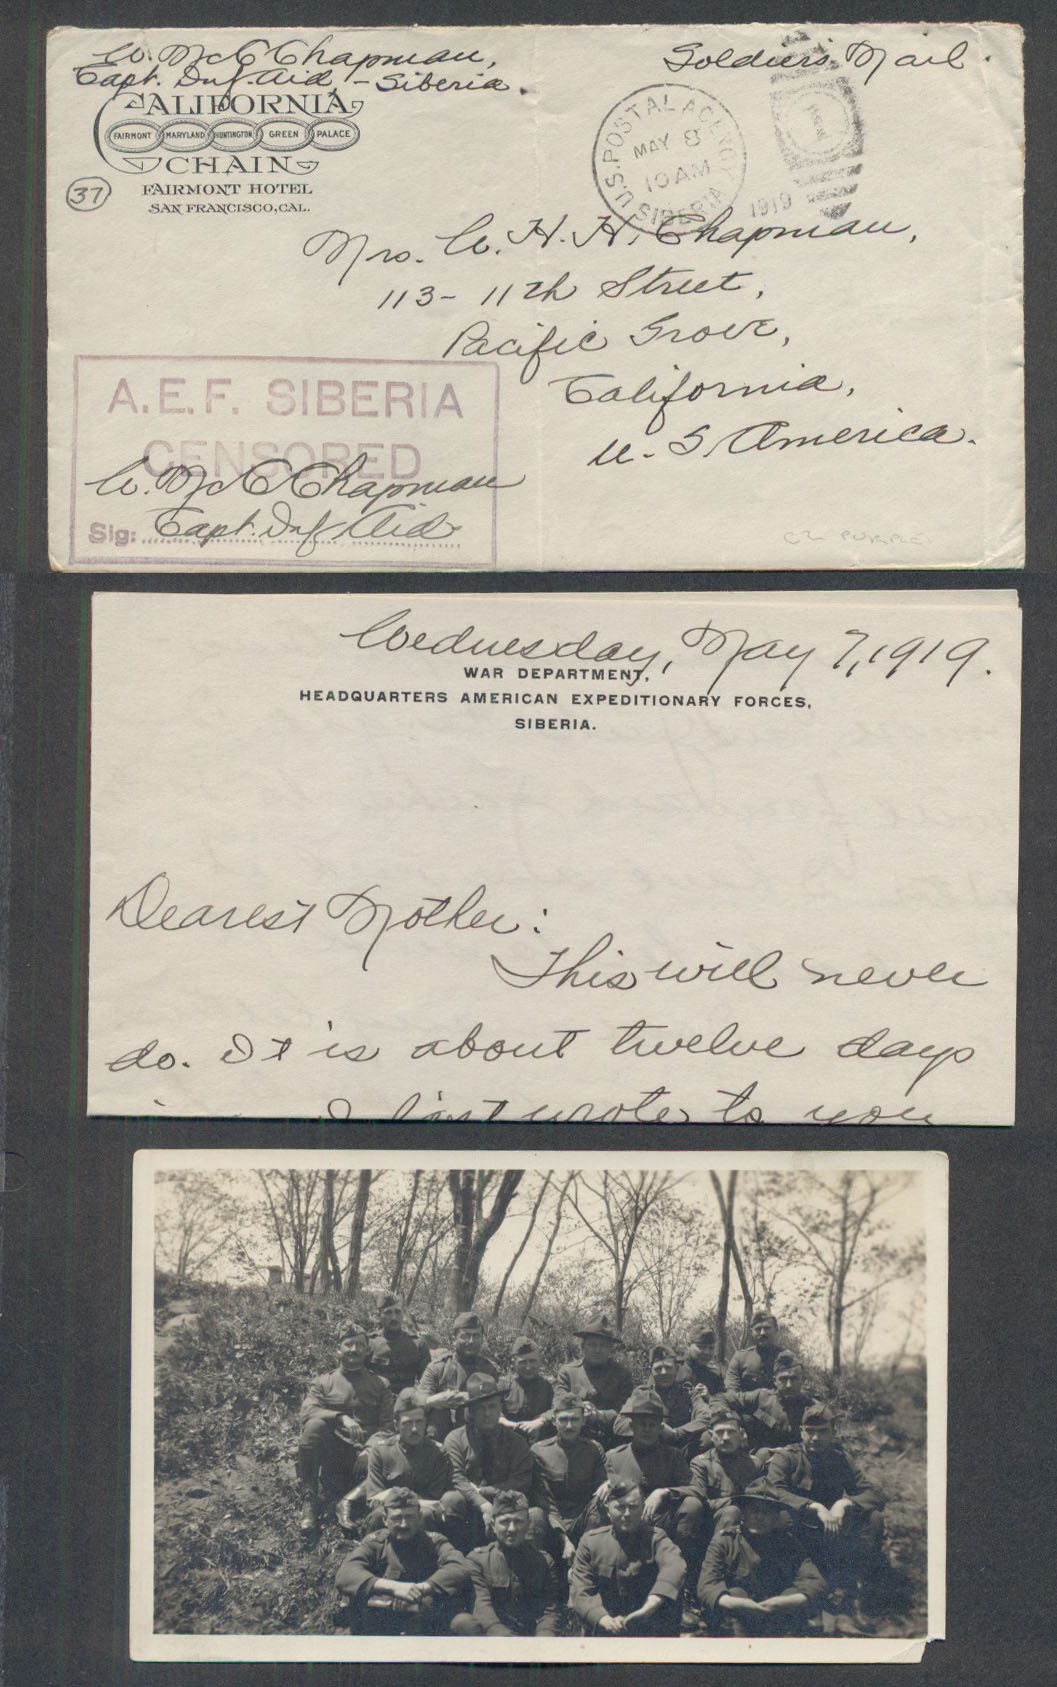 W. McC Chapman,
Capt. Inf. Aid, - Siberia.
Soldier's Mail.
CALIFORNIA
FAIRMONT MARYLAND HUNTINGTON GREEN PALACE
CHAIN
FAIRMONT HOTEL
SAN FRANCISCO, CAL.
37
U.S. POSTAL AGENCY
MAY 8
10 AM
SIBERIA
1919
Mrs. W. H. H. Chapman,
113 - 11th Street,
Pacific Grove,
California,
U. S. America.
A.E.F. SIBERIA
CENSORED
W. McC Chapman
Sig: Capt. Inf. Aid
PURPLE
Wednesday, May 7, 1919.
WAR DEPARTMENT,
HEADQUARTERS AMERICAN EXPEDITIONARY FORCES,
SIBERIA.
Dearest Mother:
This will never
do. It is about twelve days
since I last wrote to you